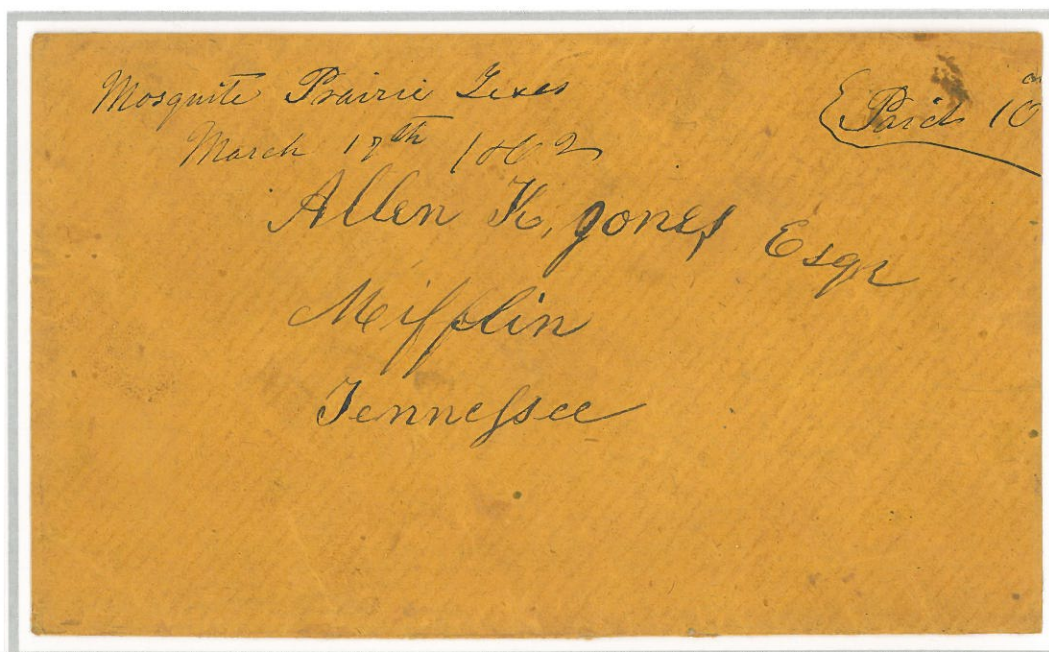 Mosquite Prairie Texas
Paid 10
March 17th 1862
Allen K, Jones Esqr
Mifflin
Tennessee